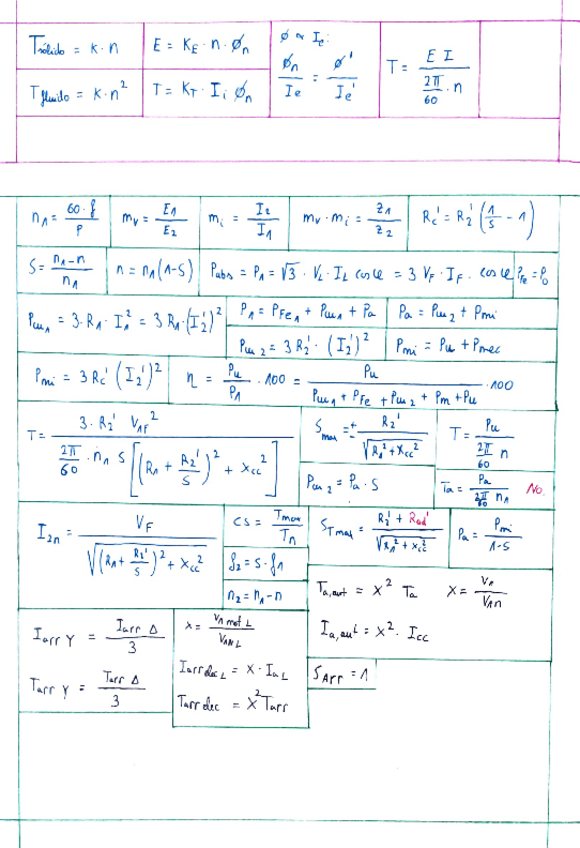 T sólido = K · n
E = K_E · n · Ø_n
Ø ∝ I_e:
Ø_n / I_e = Ø' / I_e'
T = E I / (2π/60 · n)
T fluido = K · n²
T = K_T · I_i Ø_n
n_1 = 60 · f / P
m_v = E_1 / E_2
m_i = I_2 / I_1
m_v · m_i = z_1 / z_2
R_c' = R_2' (1/s - 1)
S = (n_1 - n) / n_1
n = n_1 (1 - S)
P_abs = P_1 = √3 · V_L · I_L cos φ = 3 V_F · I_F · cos φ
P_Fe = P_0
P_cu1 = 3 · R_1 · I_1² = 3 R_1 · (I_2')²
P_1 = P_Fe1 + P_cu1 + P_a
P_a = P_cu2 + P_mi
P_cu2 = 3 R_2' · (I_2')²
P_mi = P_u + P_mec
P_mi = 3 R_c' (I_2')²
η = P_u / P_1 · 100 = P_u / (P_cu1 + P_Fe + P_cu2 + P_m + P_u) · 100
T = 3 · R_2' V_1F² / (2π/60 · n_1 S [(R_1 + R_2'/S)² + X_cc²])
S_max = ± R_2' / √(R_1² + X_cc²)
T = P_u / (2π/60 n)
P_cu2 = P_a · S
T_a = P_a / (2π/60 n_1) No.
I_2n = V_F / √((R_1 + R_2'/S)² + X_cc²)
CS = T_max / T_n
S_Tmax = (R_2' + R_ad') / √(R_1² + X_cc²)
P_a = P_mi / (1 - S)
f_2 = S · f_1
n_2 = n_1 - n
T_a,aut = X² T_a X = V_1 / V_1n
I_a,aut = X² · I_cc
I_arr Y = I_arr Δ / 3
X = V_1 mot L / V_1N L
I_arr dec L = X · I_a L
T_arr Y = T_arr Δ / 3
T_arr dec = X² T_arr
S_Arr = 1